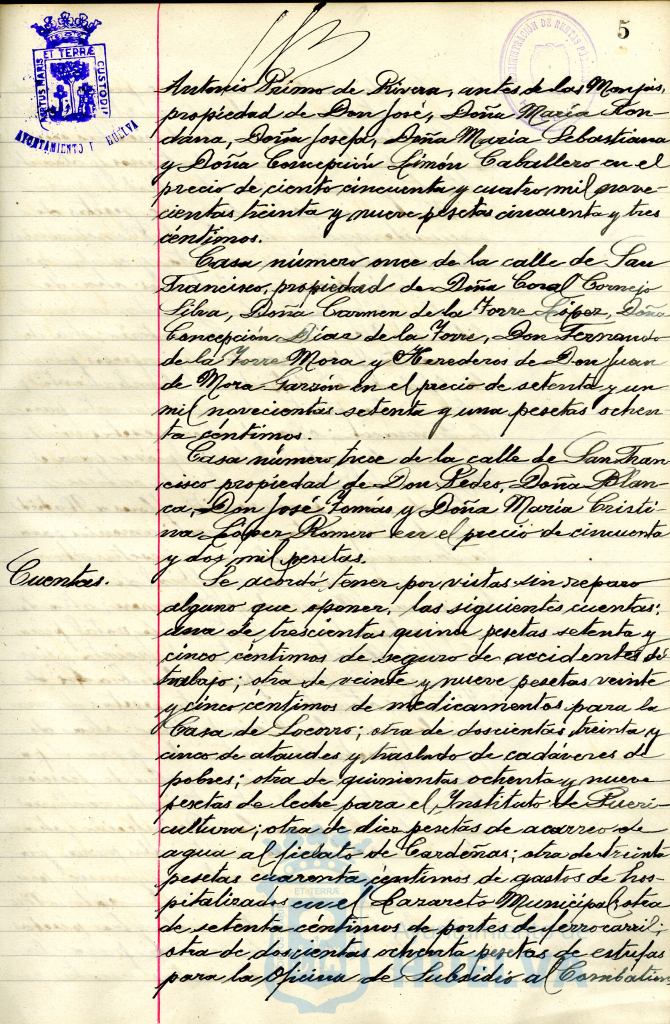 5
PORTUS MARIS ET TERRÆ CUSTODIA
AYUNTAMIENTO HUELVA
ADMINISTRACIÓN DE RENTAS
Antonio Primo de Rivera, antes de las Monjas,
propiedad de Don José, Doña María
Doña Josefa, Doña María Sebastiana
y Doña Concepción Limón Caballero en el
precio de ciento cincuenta y cuatro mil nove-
cientas treinta y nueve pesetas cincuenta y tres
céntimos.
Casa número once de la calle de San
Francisco, propiedad de Doña Coral Cornejo
Silva, Doña Carmen de la Torre López, Doña
Concepción Díaz de la Torre, Don Fernando
de la Torre Mora y Herederos de Don Juan
de Mora Garzón en el precio de setenta y un
mil novecientas setenta y una pesetas ochen-
ta céntimos.
Casa número trece de la calle de San Fran-
cisco propiedad de Don Pedro, Doña Blan-
ca, Don José Tomás y Doña María Cristi-
na López Romero en el precio de cincuenta
y dos mil pesetas.
Cuentas.
Se acordó tener por vistas sin reparo
alguno que oponer, las siguientes cuentas:
una de trescientas quince pesetas setenta y
cinco céntimos de seguro de accidentes de
trabajo; otra de veinte y nueve pesetas veinte
y cinco céntimos de medicamentos para la
Casa de Socorro; otra de doscientas treinta y
cinco de ataudes y traslado de cadáveres de
pobres; otra de quinientas ochenta y nueve
pesetas de leche para el Instituto de Pueri-
cultura; otra de diez pesetas de acarreo de
agua al fielato de Cardeñas; otra de treinta
pesetas cuarenta céntimos de gastos de hos-
pitalizados en el Lazareto Municipal; otra
de setenta céntimos de portes de ferrocarril;
otra de doscientas ochenta pesetas de estufas
para la Oficina de Subsidio al Combatien-
HUELVA